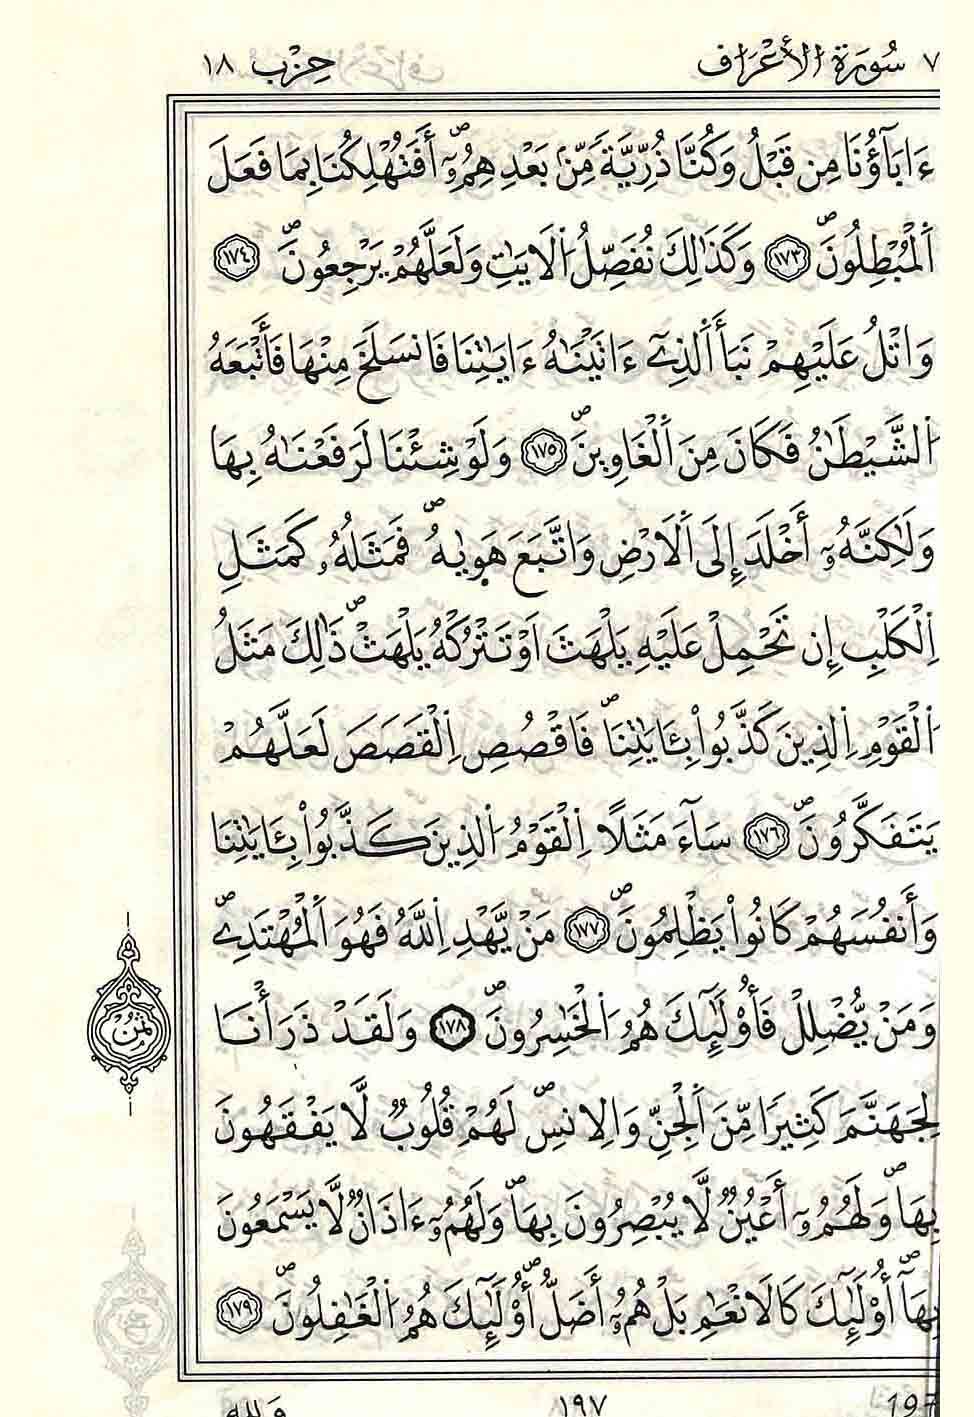 ٧ سُورَةُ الأَعْرَافِ حِزْب ١٨
ءَابَآؤُنَا مِن قَبْلُ وَكُنَّا ذُرِّيَّةً مِّنۢ بَعْدِهِمُۥٓۖ أَفَتُهْلِكُنَا بِمَا فَعَلَ
اَ۬لْمُبْطِلُونَۖ ١٧٣ وَكَذَٰلِكَ نُفَصِّلُ اُ۬لَايَٰتِ وَلَعَلَّهُمْ يَرْجِعُونَۖ ١٧٤
وَاتْلُ عَلَيْهِمْ نَبَأَ اَ۬لَّذِےٓ ءَاتَيْنَٰهُ ءَايَٰتِنَا فَانسَلَخَ مِنْهَا فَأَتْبَعَهُ
اُ۬لشَّيْطَٰنُ فَكَانَ مِنَ اَ۬لْغَاوِينَۖ ١٧٥ وَلَوْ شِئْنَا لَرَفَعْنَٰهُ بِهَا
وَلَٰكِنَّهُۥٓ أَخْلَدَ إِلَى اَ۬لَارْضِ وَاتَّبَعَ هَو۪يٰهُۖ فَمَثَلُهُۥ كَمَثَلِ
اِ۬لْكَلْبِ إِن تَحْمِلْ عَلَيْهِ يَلْهَثَ اَوْ تَتْرُكْهُ يَلْهَثْۖ ذَّٰلِكَ مَثَلُ
اُ۬لْقَوْمِ اِ۬لذِينَ كَذَّبُواْ بِـَٔايَٰتِنَاۖ فَاقْصُصِ اِ۬لْقَصَصَ لَعَلَّهُمْ
يَتَفَكَّرُونَۖ ١٧٦ سَآءَ مَثَلًا اِ۬لْقَوْمُ اُ۬لذِينَ كَذَّبُواْ بِـَٔايَٰتِنَا
وَأَنفُسَهُمْ كَانُواْ يَظْلِمُونَۖ ١٧٧ مَنْ يَّهْدِ اِ۬للَّهُ فَهُوَ اَ۬لْمُهْتَدِےۖ
وَمَنْ يُّضْلِلْ فَأُوْلَٰٓئِكَ هُمُ اُ۬لْخَٰسِرُونَۖ ١٧٨ وَلَقَدْ ذَرَأْنَا
ثُمُن
لِجَهَنَّمَ كَثِيرًا مِّنَ اَ۬لْجِنِّ وَالِانسِۖ لَهُمْ قُلُوبٌ لَّا يَفْقَهُونَ
بِهَاۖ وَلَهُمُۥٓ أَعْيُنٌ لَّا يُبْصِرُونَ بِهَاۖ وَلَهُمُۥٓ ءَاذَانٌ لَّا يَسْمَعُونَ
بِهَآۖ أُوْلَٰٓئِكَ كَالَانْعَٰمِ بَلْ هُمُۥٓ أَضَلُّۖ أُوْلَٰٓئِكَ هُمُ اُ۬لْغَٰفِلُونَۖ ١٧٩
وَلِلهِ ١٩٧ 197